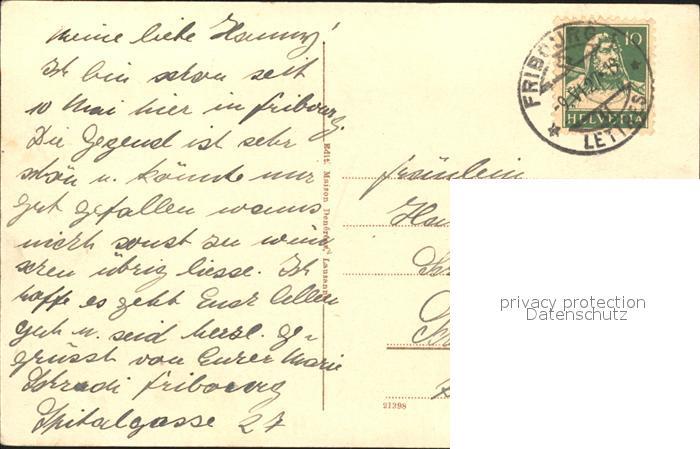 Meine liebe Hanny!
Ich bin schon seit
10 Mai hier in Fribourg.
Die Gegend ist sehr
schön u. könnte mir
gut gefallen wenns
nicht sonst zu wün
schen übrig liesse. Ich
hoffe es geht Euch allen
gut u. seid herzl. ge-
grüsst von Eurer Marie
Fribourg
Spitalgasse 27
Edit. Maison Denéréaz, Lausanne
21398
FRIBOURG
LETTRES
10
HELVETIA
Fräulein
privacy protection
Datenschutz